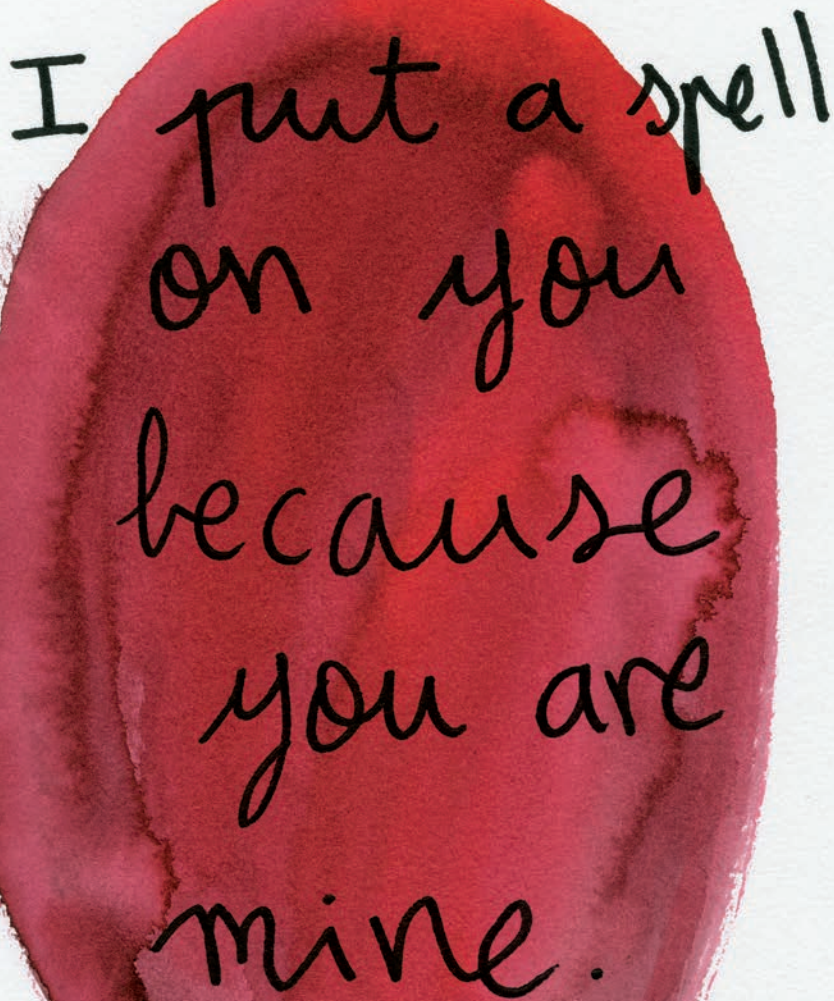 I put a spell
on you
because
you are
mine.